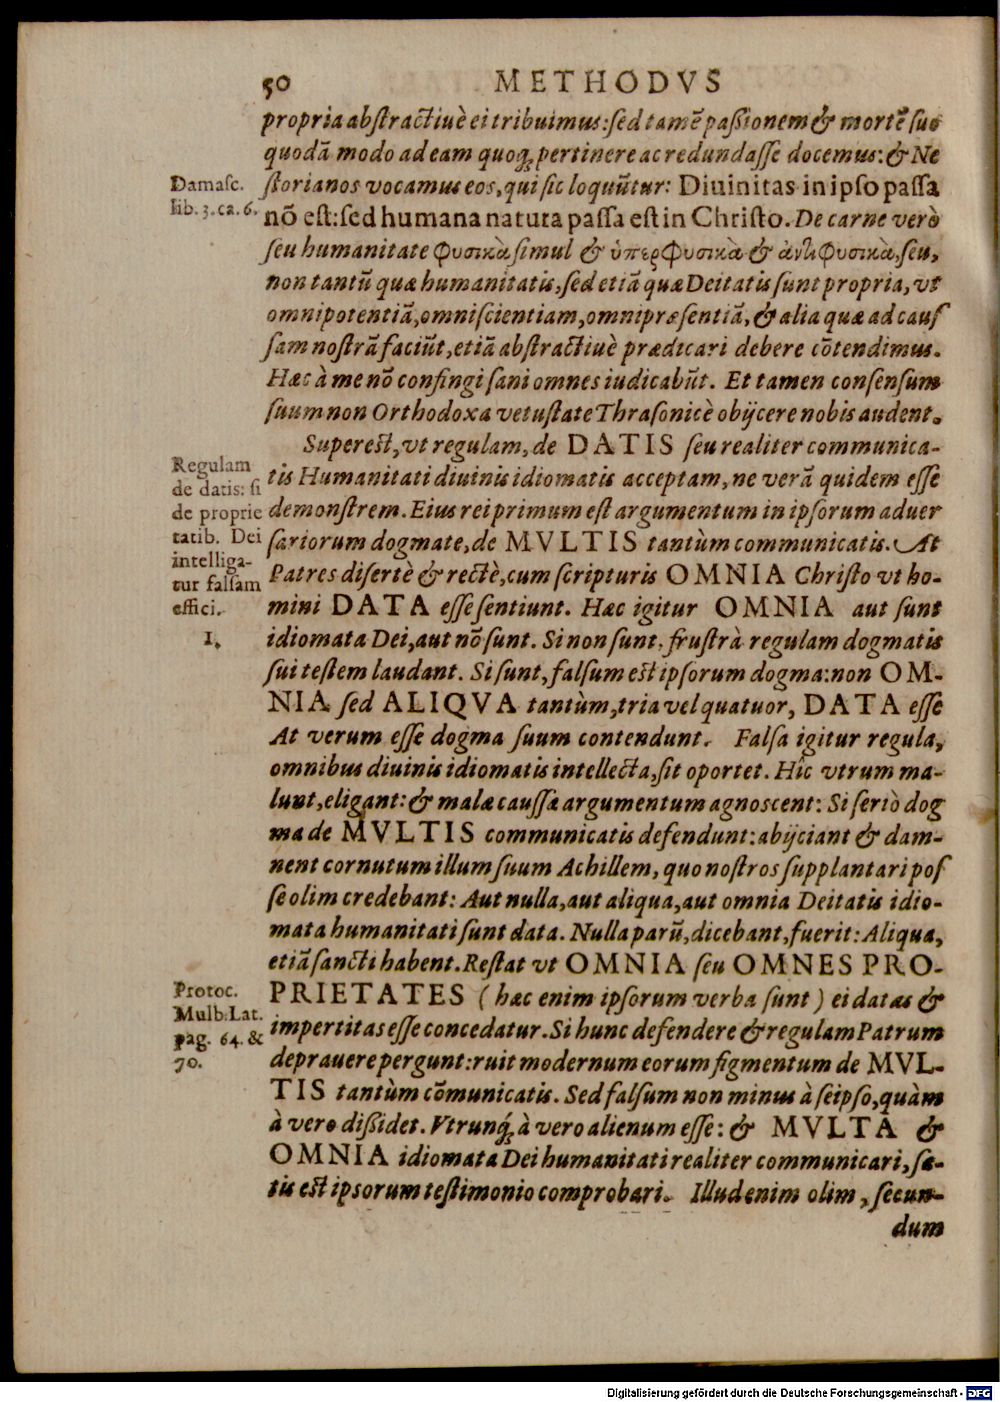 50 METHODVS
propria abſtractiuè ei tribuimus: ſed tamẽ paßionem & mortẽ ſuo
quodã modo ad eam quoq; pertinere ac redundaſſe docemus: & Ne
Damaſc.
lib. 3. ca. 6.
ſtorianos vocamus eos, qui ſic loquũtur: Diuinitas in ipſo paſſa
nõ eſt: ſed humana natura paſſa eſt in Chriſto. De carne verò
ſeu humanitate φυσικὰ ſimul & ὑπερφυσικὰ & ἀντιφυσικὰ, ſeu,
non tantũ quæ humanitatis, ſed etiã quæ Deitatis ſunt propria, vt
omnipotentiã, omniſcientiam, omnipræſentiã, & alia quæ ad cauſ
ſam noſtrã faciũt, etiã abſtractiuè prædicari debere cõtendimus.
Hæc à me nõ confingi ſani omnes iudicabũt. Et tamen conſenſum
ſuum non Orthodoxa vetuſtate Thraſonicè obijcere nobis audent.
Supereſt, vt regulam, de DATIS ſeu realiter communica-
Regulam
de datis: ſi
de proprie
tatib. Dei
intelliga-
tur falſam
effici.
1.
tis Humanitati diuinis idiomatis acceptam, ne verã quidem eſſe
demonſtrem. Eius rei primum eſt argumentum in ipſorum aduer
ſariorum dogmate, de MVLTIS tantùm communicatis. At
Patres diſertè & rectè, cum ſcripturis OMNIA Chriſto vt ho-
mini DATA eſſe ſentiunt. Hæc igitur OMNIA aut ſunt
idiomata Dei, aut nõ ſunt. Si non ſunt, fruſtrà regulam dogmatis
ſui teſtem laudant. Si ſunt, falſum eſt ipſorum dogma: non OM-
NIA ſed ALIQVA tantùm, tria vel quatuor, DATA eſſe
At verum eſſe dogma ſuum contendunt. Falſa igitur regula,
omnibus diuinis idiomatis intellecta, ſit oportet. Hîc vtrum ma-
lunt, eligant: & malæ cauſſæ argumentum agnoſcent: Si ſeriò dog
ma de MVLTIS communicatis defendunt: abijciant & dam-
nent cornutum illum ſuum Achillem, quo noſtros ſupplantari poſ
ſe olim credebant: Aut nulla, aut aliqua, aut omnia Deitatis idio-
mata humanitati ſunt data. Nulla parũ, dicebant, fuerit: Aliqua,
etiã ſancti habent. Reſtat vt OMNIA ſeu OMNES PRO-
Protoc.
Mulb: Lat.
pag. 64. &
70.
PRIETATES (hæc enim ipſorum verba ſunt) ei datas &
impertitas eſſe concedatur. Si hunc defendere & regulam Patrum
deprauere pergunt: ruit modernum eorum figmentum de MVL-
TIS tantùm cõmunicatis. Sed falſum non minus à ſeipſo, quàm
à vero dißidet. Vtrunq; à vero alienum eſſe: & MVLTA &
OMNIA idiomata Dei humanitati realiter communicari, ſa-
tis eſt ipsorum teſtimonio comprobari. Illud enim olim, ſecun-
dum
Digitalisierung gefördert durch die Deutsche Forschungsgemeinschaft - DFG